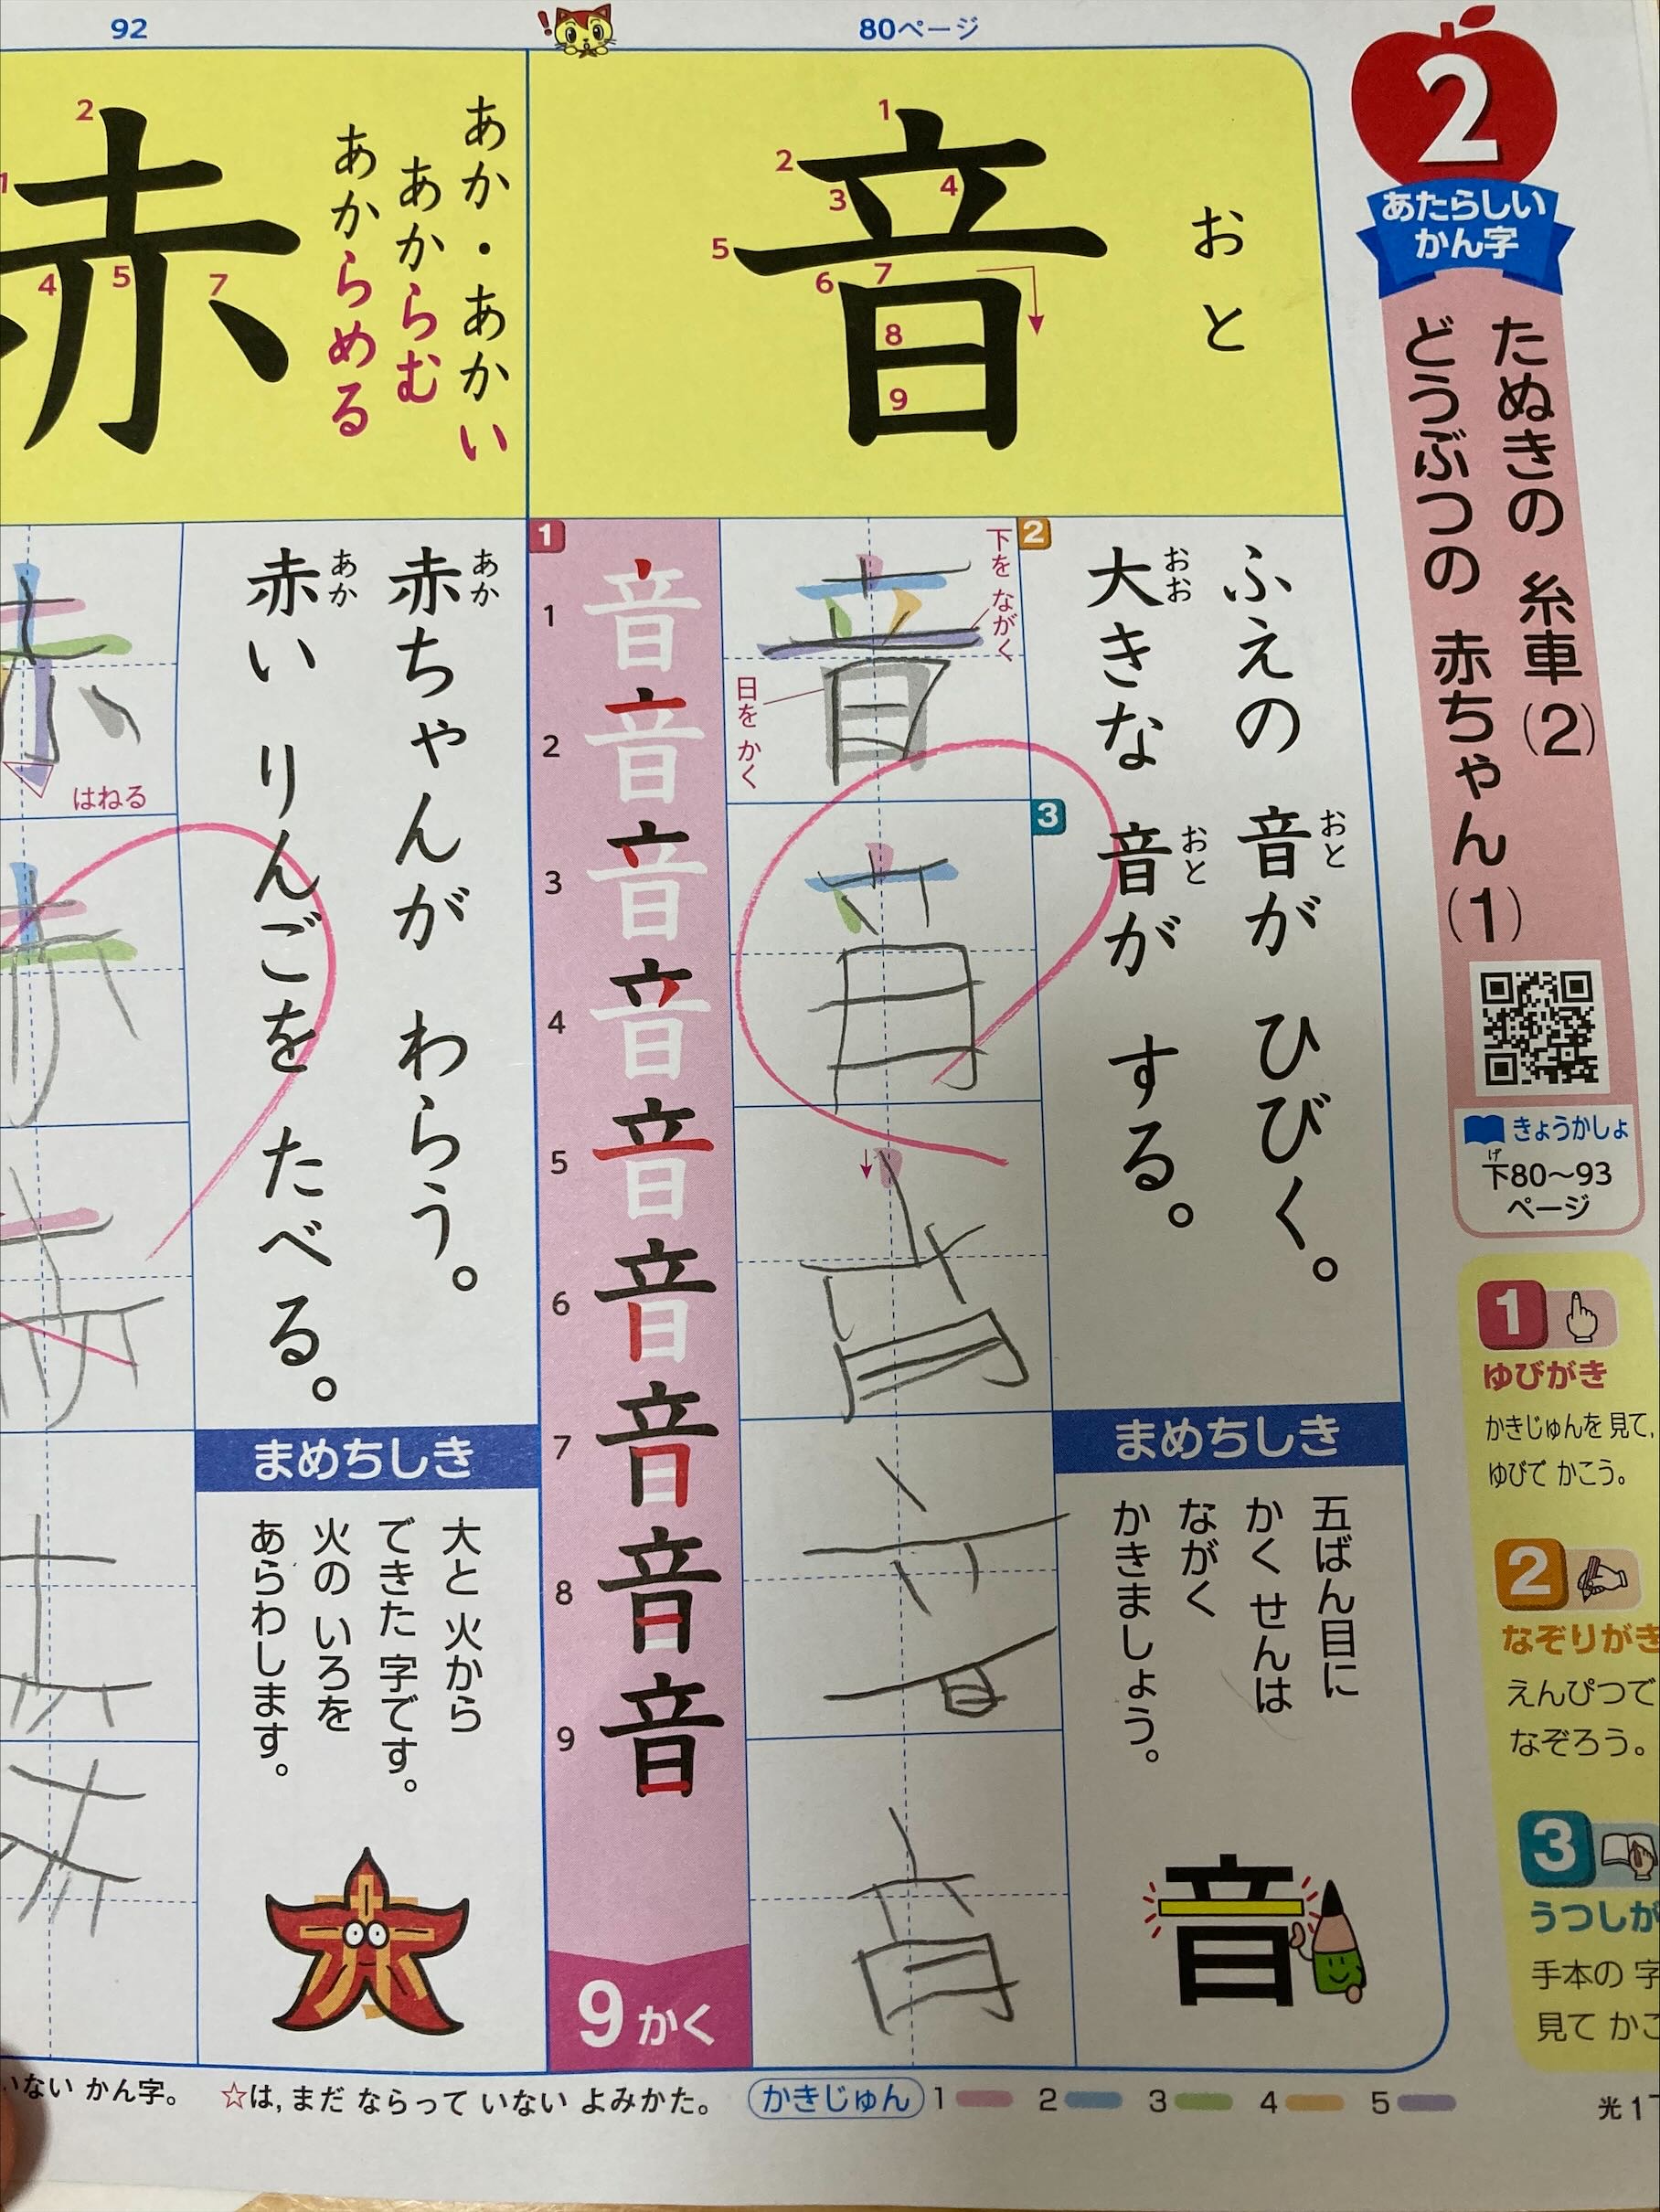 92
80ページ
2
あたらしい
かん字
たぬきの 糸車(2)
どうぶつの 赤ちゃん(1)
きょうかしょ
げ
下80〜93
ページ
1
ゆびがき
かきじゅんを 見て,
ゆびで かこう。
2
なぞりがき
えんぴつで
なぞろう。
3
うつしが
手本の 字
見て かこ
おと
音
1
2
3
4
5
6
7
8
9
ふえの 音が ひびく。
おと
大きな 音が する。
おお
おと
まめちしき
五ばん目に
かく せんは
ながく
かきましょう。
音
2
下を ながく
日を かく
音
3
音
音
音
音
1
1 音
2 音
3 音
4 音
5 音
6 音
7 音
8 音
9 音
9かく
あか・あかい
あからむ
あからめる
赤
1
2
4
5
7
赤ちゃんが わらう。
あか
赤い りんごを たべる。
あか
まめちしき
大と 火から
できた 字です。
火の いろを
あらわします。
はねる
いない かん字。
☆は,まだ ならって いない よみかた。
かきじゅん 1 2 3 4 5
光1